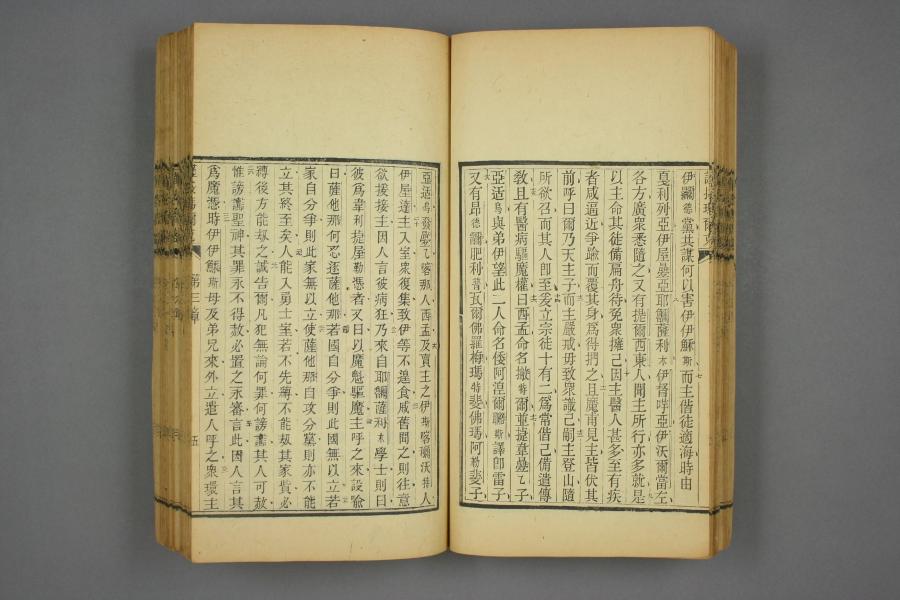 伊黼德黨共謀何以害伊伊穌斯而主偕徒適海時由
戛利列亞伊屋曡亞耶黼薩利木伊督呼亞伊沃爾當左
各方廣衆悉隨之又有提爾西東人聞主所行亦多就是
以主命其徒備扁舟待免衆擁己因主醫人甚多至有疾
者咸逼近爭踰而覆其身爲得捫之且魔甫見主皆伏其
前呼曰爾乃天主子而主嚴戒毋致衆識己嗣主登山隨
所欲召而其人卽至爰立宗徒十有二爲常偕己備遣傳
敎且有醫病驅魔權曰西孟命名撇特爾並提韋曡乙子
亞适烏與弟伊望此二人命名倭阿湼爾聼斯譯卽雷子
又有昂德爾肥利普瓦爾佛羅梅瑪特斐佛瑪阿勒斐子
亞适烏發曡乙喀那人西孟及賣主之伊斯喀璃沃特人
伊屋達主入室衆復集致伊等不遑食戚舊聞之則往意
欲援接主因人言彼病狂乃來自耶黼薩利木學士則曰
彼爲韋利捷屋勒憑者又曰以魔魁驅魔主呼之來設喩
曰薩他那何忍逐薩他那若國自分爭則此國無以立若
家自分爭則此家無以立使薩他那自攻分黨則亦不能
立其終至矣人能入勇士室若不先縛不能刼其家貲必
縛後方能刼之誠告爾凡犯無論何罪何謗讟其人可赦
惟謗讟聖神其罪永不得赦必置之永審言此因人言其
爲魔憑時伊伊穌斯母及弟兄來外立遣人呼之衆環主
第三章
五